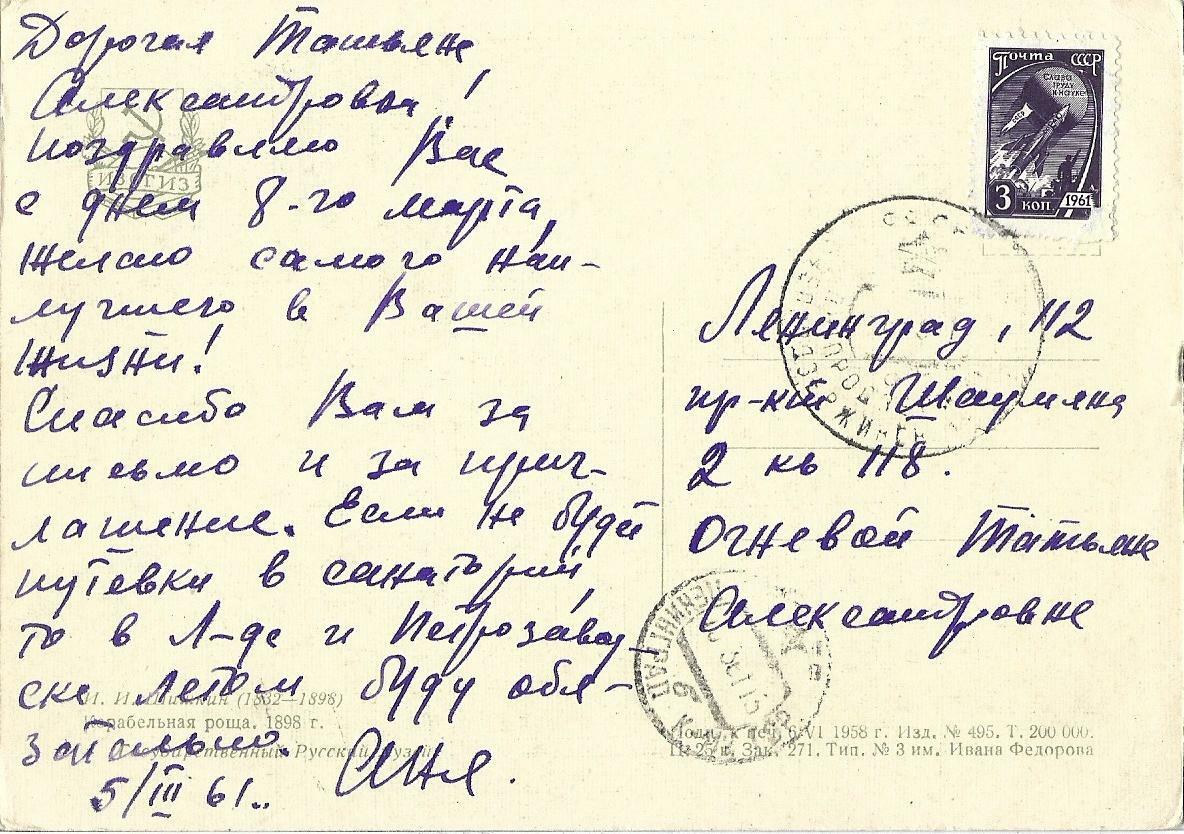 Дорогая Татьяне
Александровна!
поздравляю Вас
с днем 8-го марта,
желаю самого наи-
лучшего в Вашей
жизни!
Спасибо Вам за
письмо и за приг-
лашение. Если не будет
путевки в санаторий,
то в Л-де и Петрозавод-
ске летом буду обя-
зательно.
Аня.
5/III 61..
ИЗОГИЗ
И. И. Шишкин (1832—1898)
Корабельная роща. 1898 г.
Государственный Русский музей
Почта СССР
СЛАВА
ТРУДУ
И НАУКЕ
3 КОП. 1961
Ленинград, 112
пр-кт Шаумяна
2 кв 118.
Огневой Татьяне
Александровне
ЛЕНИНГРАД
Подп. к печ. 6/VI 1958 г. Изд. № 495. Т. 200 000.
Ц. 25 к. Зак. 271. Тип. № 3 им. Ивана Федорова